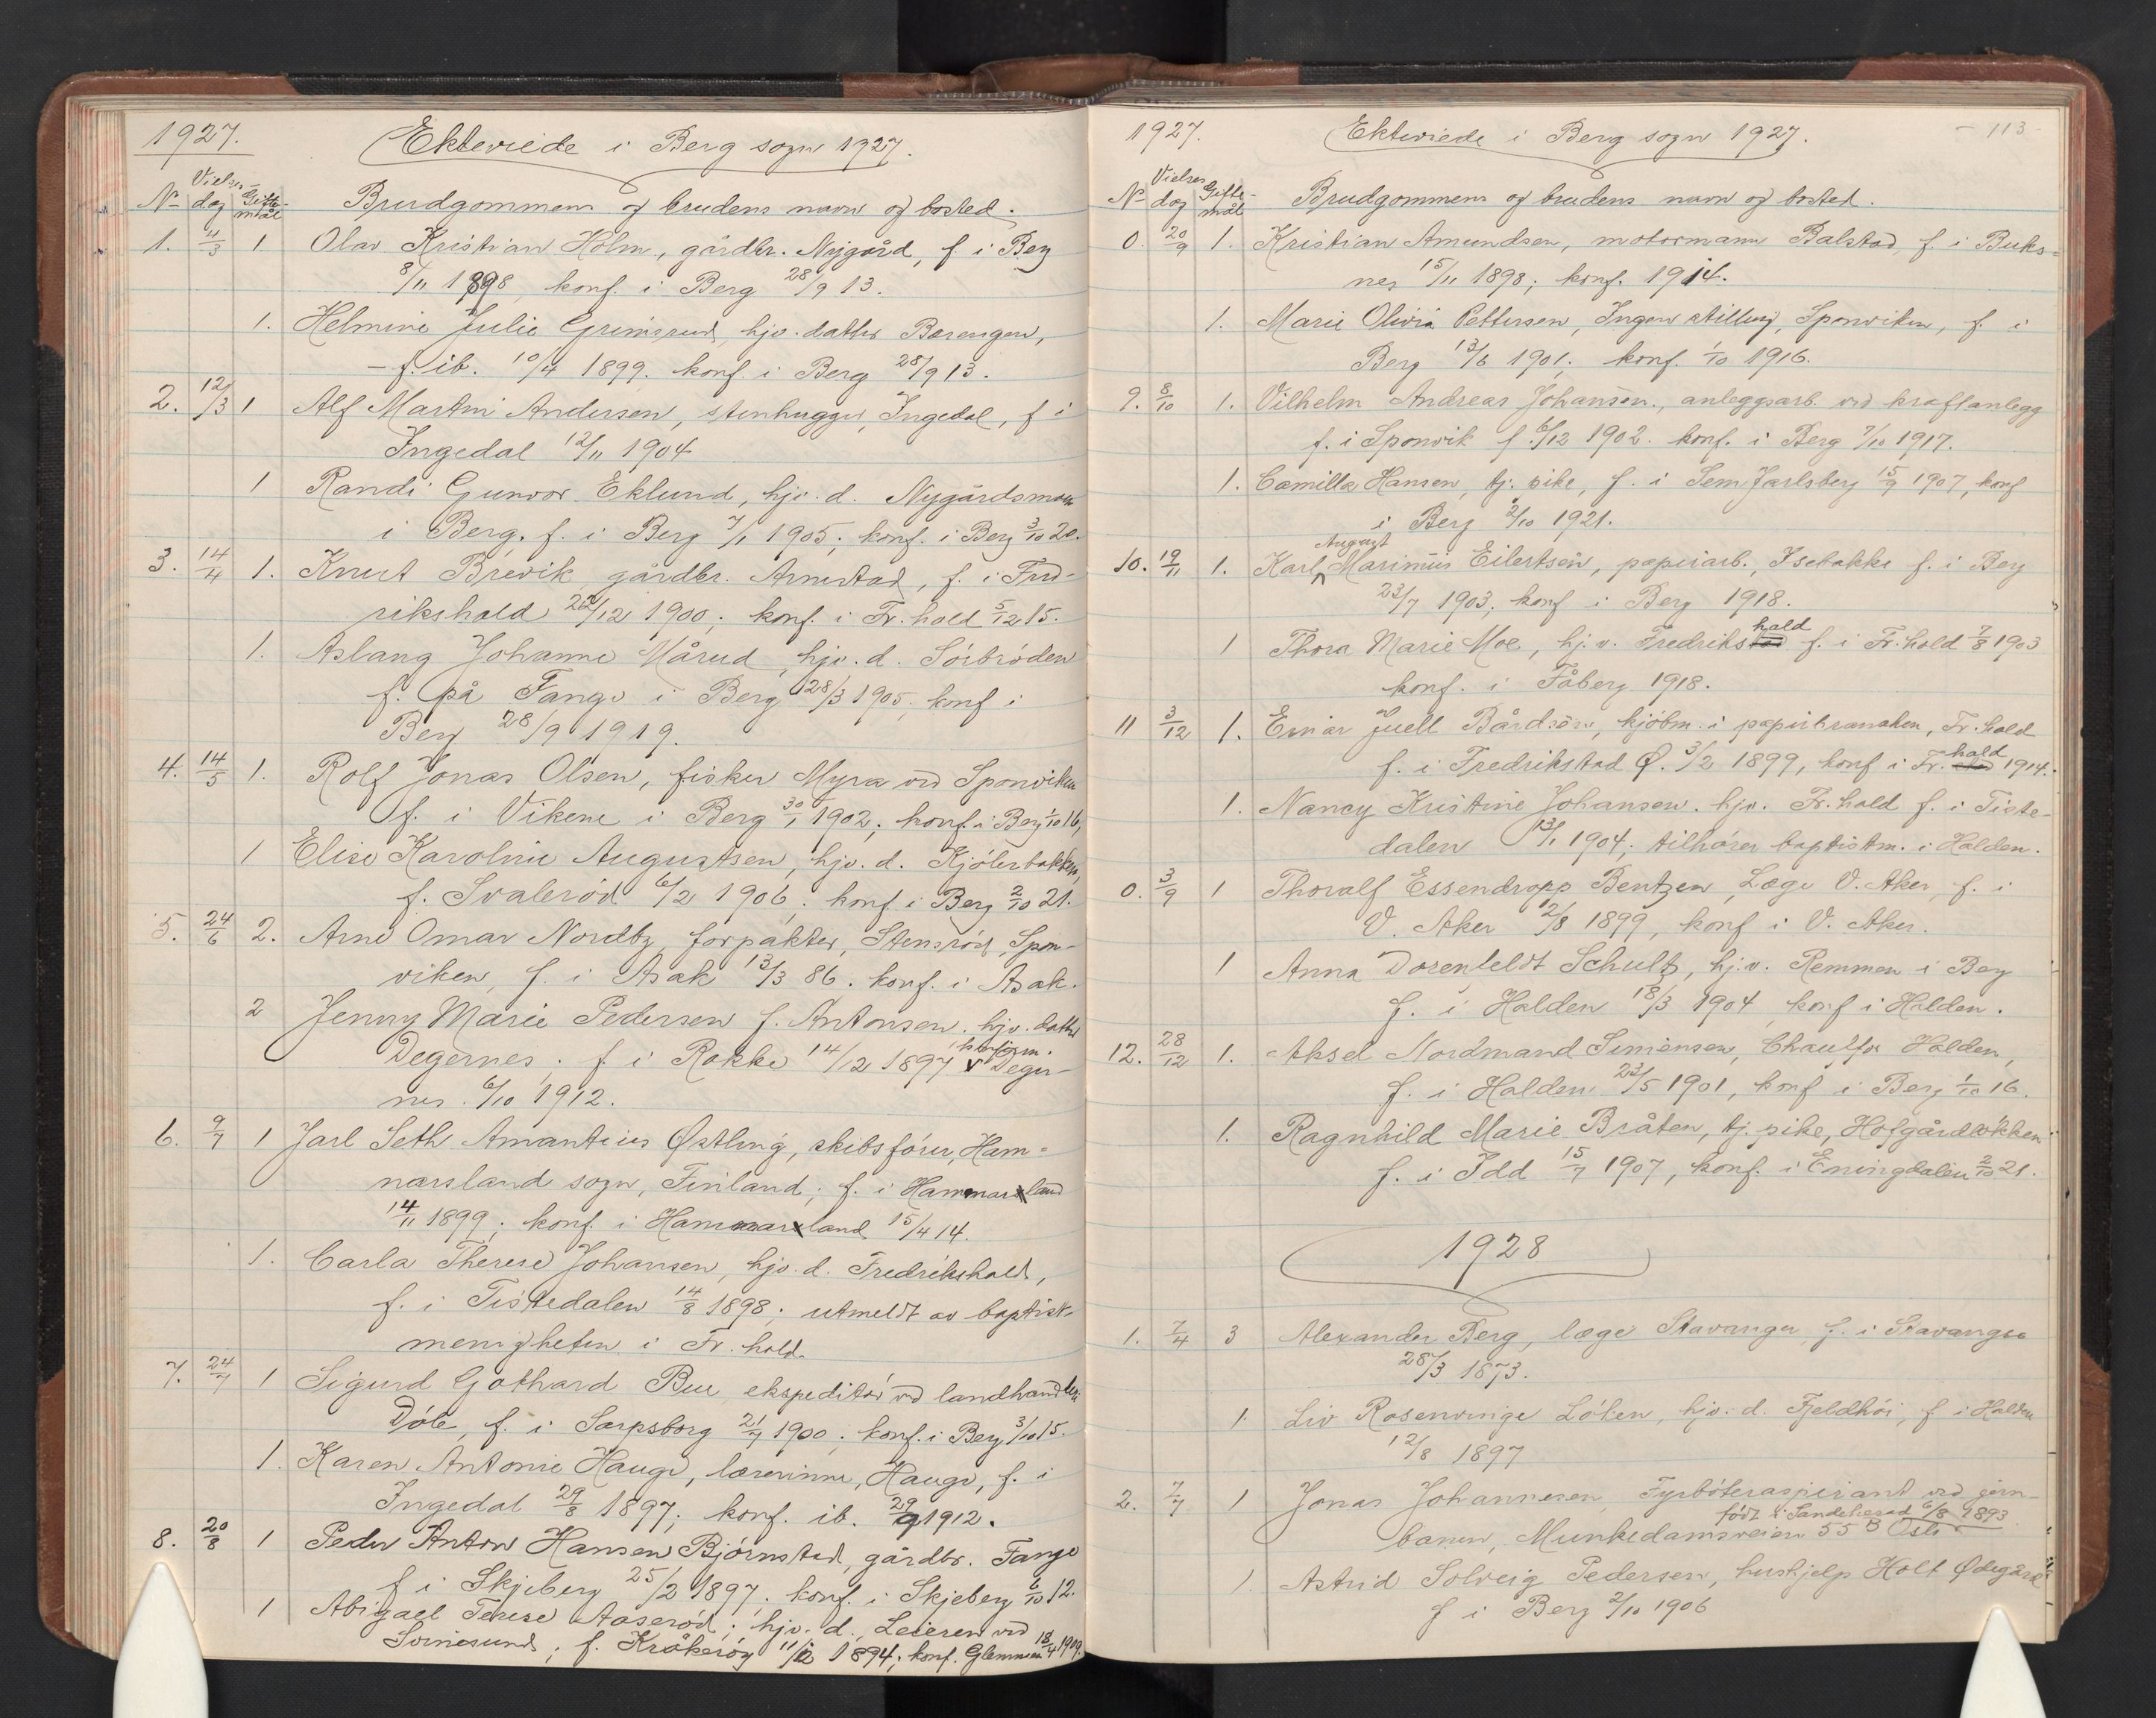 1927.
Ekteviede i Berg sogn 1927.
Nr Vielses-dag Giftemål Brudgommens og brudens navn og bosted.
1. 4/3 1 Olav Kristian Holm, gårdbr. Nygård, f. i Berg
8/11 1898, konf. i Berg 28/9 13.
1. Helmine Julie Grimsrud, hjv. datter Børengen,
f. ib. 10/4 1899. konf. i Berg 28/9 13.
2. 12/3 1 Alf Martin Andersen, stenhugger, Ingedal, f i
Ingedal 12/11 1904
1 Randi Gunvor Eklund, hjv. d. Nygårdsmoen
i Berg. f. i Berg 7/1 1905; konf. i Berg 3/10 20.
3. 14/4 1. Knut Brevik gårdbr. Arnestad, f. i Fred-
rikshald 22/12 1900; konf. i Fr.hald 5/12 15.
1. Aslaug Johanne Mårud hjv. d. Sörbröden
f. på Fange i Berg 28/3 1905, konf i
Berg 28/9 1919.
4. 14/5 1. Rolf Jonas Olsen, fisker Myra ved Sponviken
f. i Vikene i Berg 30/1 1902; konf. i Berg 1/10 16,
1 Elise Karoline Augustsen, hjv. d. Kjölerbakken,
f. Svaleröd 6/2 1906; konf i Berg 2/10 21.
5. 24/6 2. Arne Omar Nordby, forpakter, Stensröd, Spon-
viken, f. i Asak 13/3 86. konf. i Asak.
2 Jenny Marie Pedersen f. Antonsen. hjv. datter
Degernes. f i Rokke 14/12 1897 konfirm. Deger-
nes. 6/10 1912.
6. 9/7 1 Jarl Seth Amantius Østling, skibsförer, Ham-
narsland sogn, Finland; f. i Hammarland
14/11 1899; konf. i Hammarland 15/4 14.
1. Carla Therese Johansen, hjv. d. Fredrikshald,
f. i Tistedalen 14/8 1898; utmeldt av baptist-
menigheten i Fr.hald.
7. 24/7 1 Sigurd Gothard Bue ekspeditör ved landhandleri
Döle, f. i Sarpsborg 21/7 1900; konf. i Berg 3/10 15.
1. Karen Antonie Hauge, lærerinne, Hauge, f. i
Ingedal 29/8 1897; konf. ib. 29/9 1912.
8. 20/8 1 Peder Anton Hansen Björnstad, gårdbr. Fange
f i Skjeberg 25/2 1897. konf. i Skjeberg 6/10 12.
1 Abigael Terese Aaseröd; hjv. d., Leieren ved
Svinesund; f. Kråkeröy 11/12 1894; konf. Glemmen 18/4 1909.
1927. Ekteviede i Berg sogn 1927. - 113 -
Nr Vielses dag Giftemål Brudgommens og brudens navn og bosted.
0. 20/9 1. Kristian Amundsen, motormann Balstad, f. i Buks-
nes 15/11 1898; konf. 1914.
1. Marie Olivia Pettersen, Ingen stilling, Sponviken, f. i
Berg 13/6 1901; konf. 1/10 1916.
9. 8/10 1. Vilhelm Andreas Johansen., anleggsarb. ved kraftanlegg
f. i Sponvik f 6/12 1902. konf. i Berg 7/10 1917.
1. Camilla Hansen, tj. pike, f. i Sem Jarlsberg 15/9 1907, konf
i Berg 2/10 1921.
August
10. 19/11 1. Karl Marinius Eilertsen, papirarb., Isebakke f. i Berg
23/7 1903; konf i Berg 1918.
1 Thora Marie Moe, hj.v. Fredrikshald f. i Fr.hald 7/8 1903
konf. i Fåberg 1918.
11 3/12 1. Einar Juell Bårdsön, kjöbm. i papirbranchen, Fr.hald
f. i Fredrikstad Ø. 3/2 1899, konf i Fr.hald 1914.
1. Nancy Kristine Johansen. hjv. Fr.hald f. i Tiste-
dalen 13/1 1904; tilhörer baptistm. i Halden.
0. 3/9 1 Thoralf Essendropp Bentzen, Læge V. Aker, f. i
V. Aker 12/8 1899, konf i V. Aker.
1 Anna Dorenfeldt Schultz, hj.v. Remmen i Berg
f. i Halden 18/3 1904, konf i Halden.
12. 28/12 1. Aksel Nordmand Simensen, Chauffør Halden,
f. i Halden 23/5 1901, konf i Berg 1/10 16.
1. Ragnhild Marie Bråten, tj. pike, Hofgårdløkken
f. i Idd 15/7 1907, konf. i Enningdalen 2/10 21.
1928
1. 7/4 3 Alexander Berg, læge Stavanger f. i Stavanger
28/3 1873.
1 Liv Rosenvinge Löken, hjv. d. Fjeldhöi, f i Halden
12/8 1897
2. 7/7 1 Jonas Johannesen Fyrböteraspirant ved jern-
født i Sandeherad 6/8 1893
banen, Munkedamsveien 55 B Oslo
1. Astrid Solveig Pedersen, hushjelp Holt Ødegård
f i Berg 2/10 1906